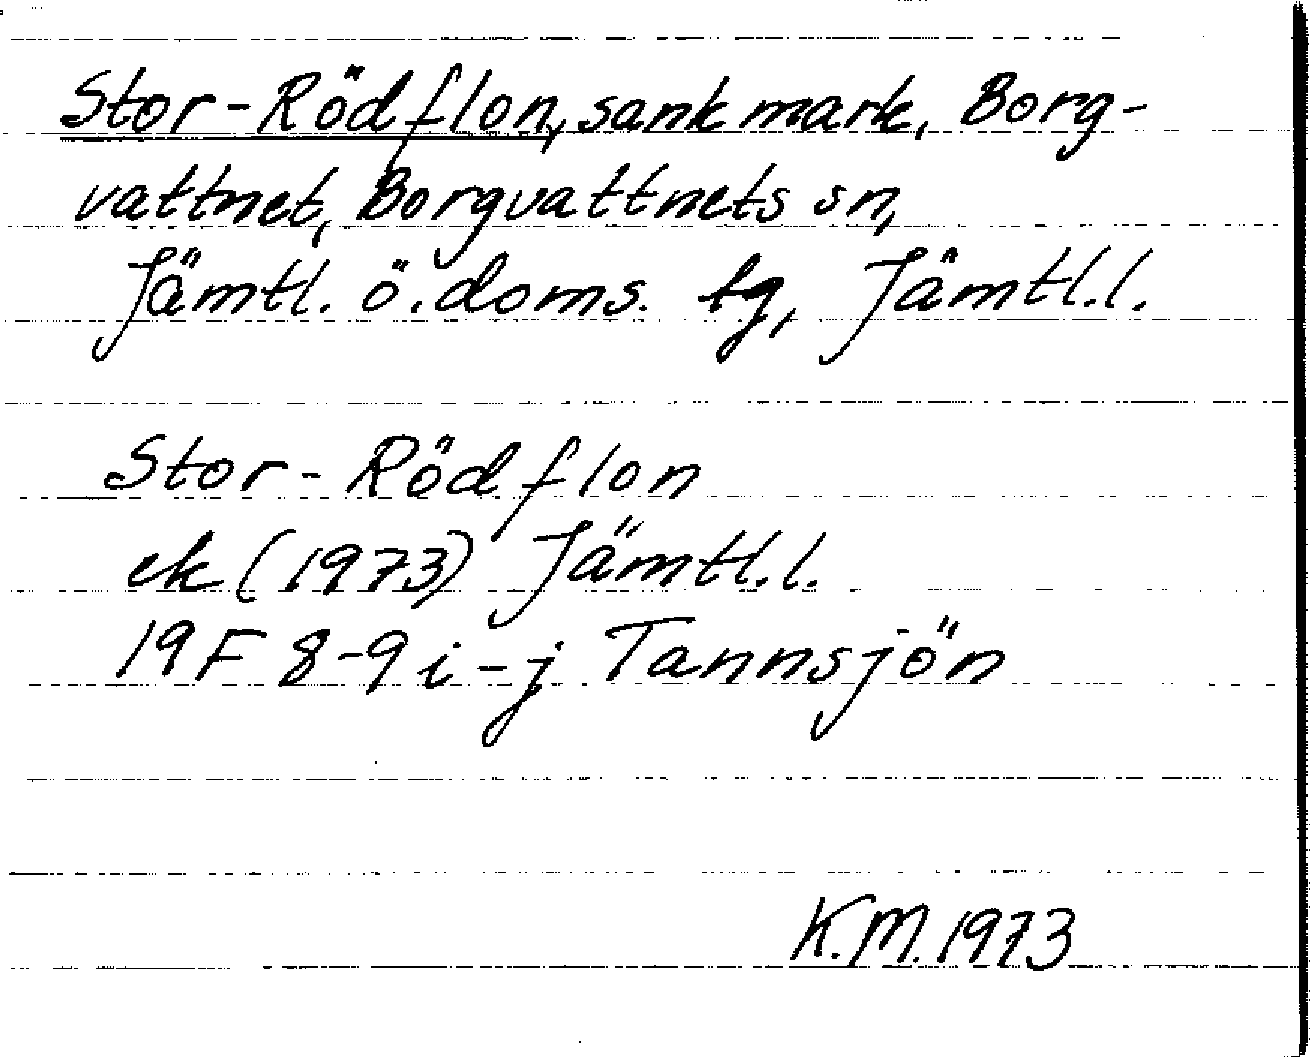 Stor-Rödflon, sank mark, Borg-
vattnet, Borgvattnets sn,
Jämtl. ö. doms. tg, Jämtl.l.
Stor-Rödflon
ek (1973) Jämtl.l.
19F 8-9 i-j Tannsjön
K.M. 1973